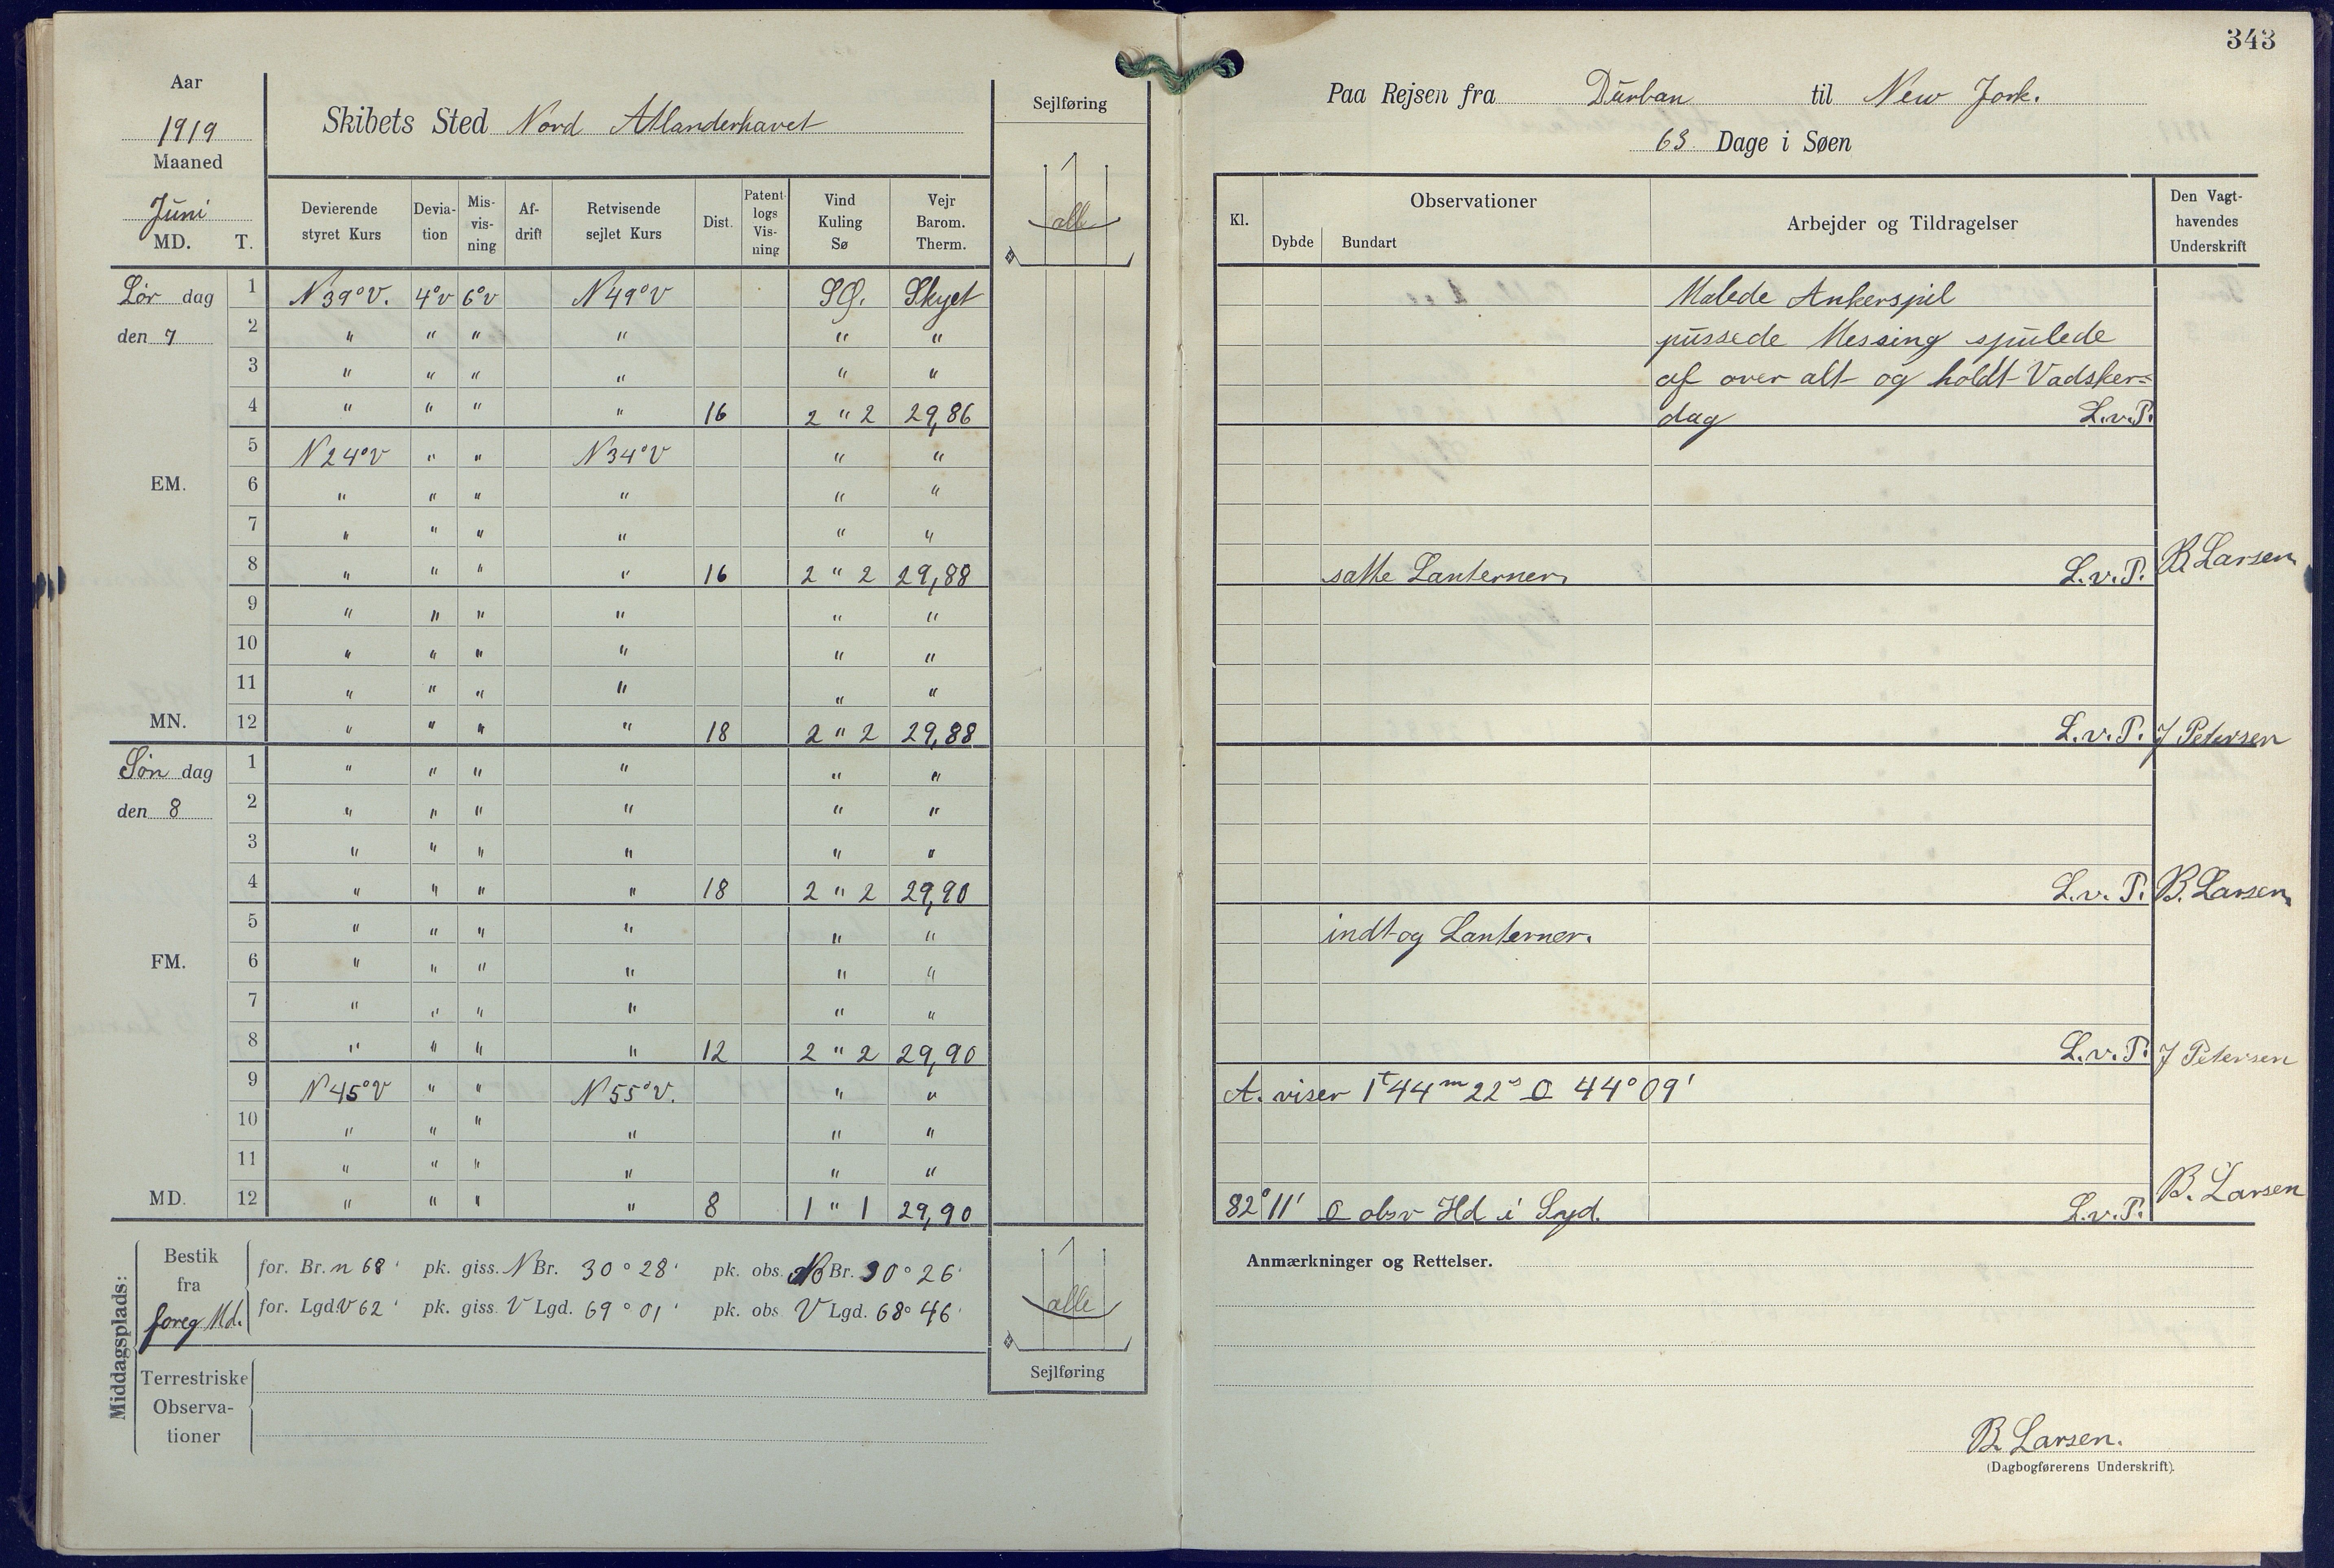 343
Aar
1919
Maaned
Juni
MD. T.
Skibets Sted Nord Atlanderhavet
Sejlføring
alle
Devierende styret Kurs
Deviation
Misvisning
Afdrift
Retvisende sejlet Kurs
Dist.
Patentlogs Visning
Vind Kuling Sø
Vejr Barom. Therm.
Lør dag 1 N39°V. 4°V 6°V N49°V SØ. Skyet
den 7 2 " " " " " "
3 " " " " " "
4 " " " " 16 2 " 2 29,86
5 N24°V " " N34°V " "
EM. 6 " " " " " "
7 " " " " " "
8 " " " " 16 2 " 2 29,88
9 " " " " " "
10 " " " " " "
11 " " " " " "
MN. 12 " " " " 18 2 " 2 29,88
Søn dag 1 " " " " " "
den 8 2 " " " " " "
3 " " " " " "
4 " " " " 18 2 " 2 29,90
5 " " " " " "
FM. 6 " " " " " "
7 " " " " " "
8 " " " " 12 2 " 2 29,90
9 N45°V " " N55°V. " "
10 " " " " " "
11 " " " " " "
MD. 12 " " " " 8 1 " 1 29,90
Middagsplads:
Bestik fra foreg Md.
for. Br. n 68' pk. giss. N Br. 30°28' pk. obs. N Br. 30°26'
for. Lgd V 62' pk. giss. V Lgd. 69°01' pk. obs V Lgd. 68°46'
Terrestriske Observationer
alle
Sejlføring
Paa Rejsen fra Durban til New York.
63 Dage i Søen
Kl.
Observationer
Dybde Bundart
Arbejder og Tildragelser
Den Vagthavendes Underskrift
Malede Ankerspil
pussede Messing spulede
af over alt og holdt Vadsker=
dag L.v.P.
satte Lanterner. L.v.P. B. Larsen.
L.v.P. J Petersen
L.v.P. B. Larsen.
indtog Lanterner.
L.v.P. J Petersen
A. viser 1t 44m 22s O 44°09'
82°11' O obsv Hd i Syd. L.v.P. B. Larsen
Anmærkninger og Rettelser.
B. Larsen.
(Dagbogførerens Underskrift).